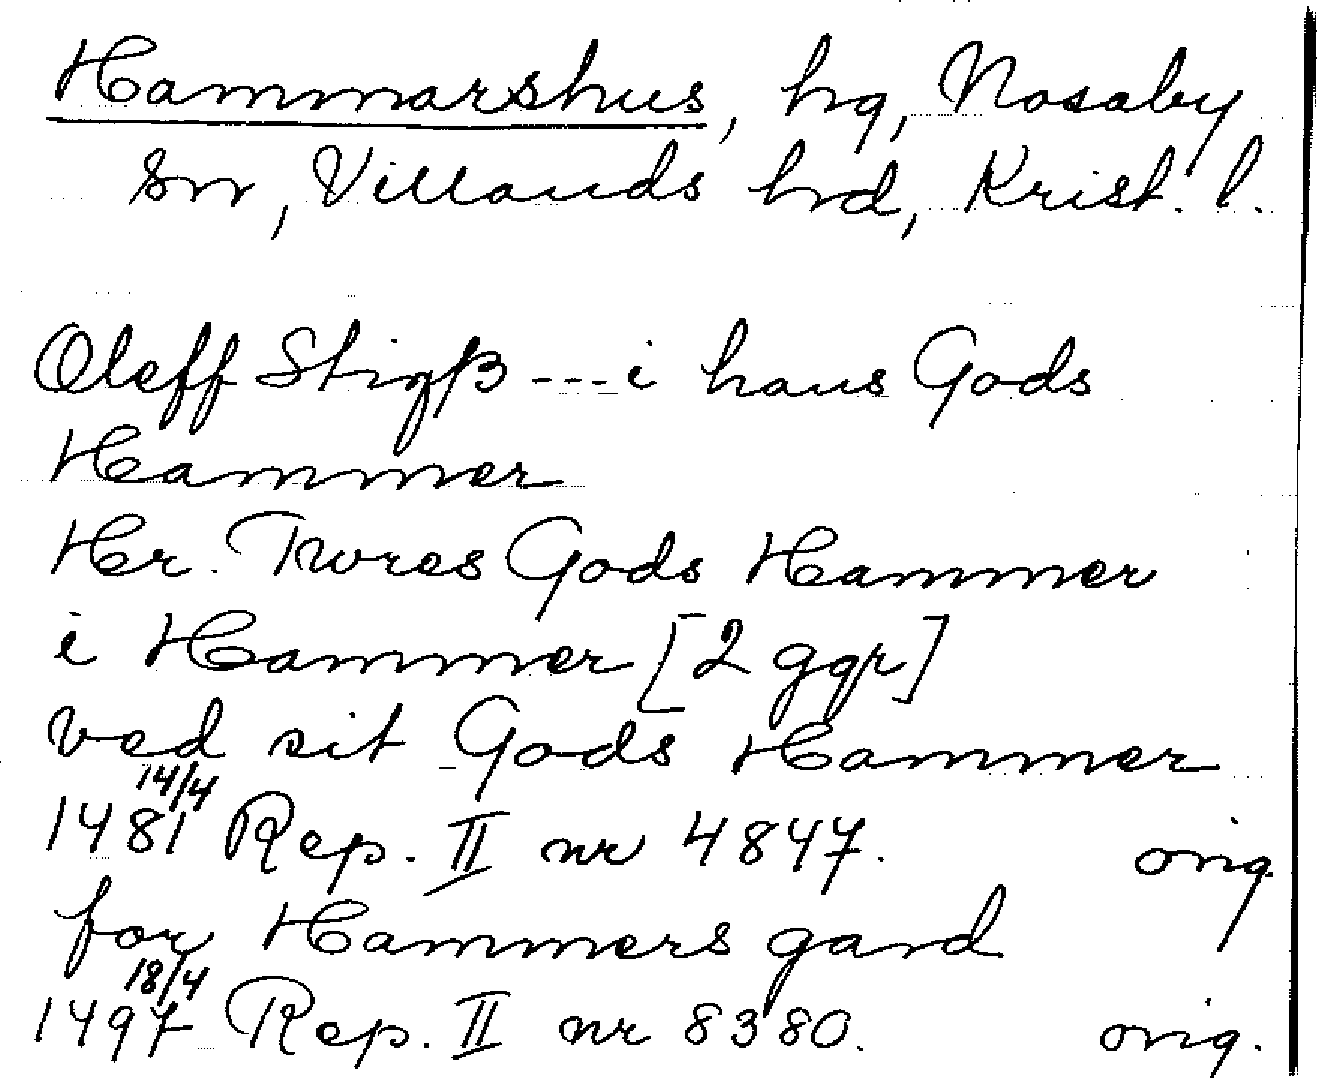 Hammarshus, hg, Nosaby
sn, Villands hd, Krist. l.
Oleff Stigß ---i hans Gods
Hammer
Her. Twres Gods Hammer
i Hammer [2 ggr]
ved sit Gods Hammer
14/4
1481 Rep. II nr 4847. orig
for Hammers gard
18/4
1497 Rep. II nr 8380. orig.